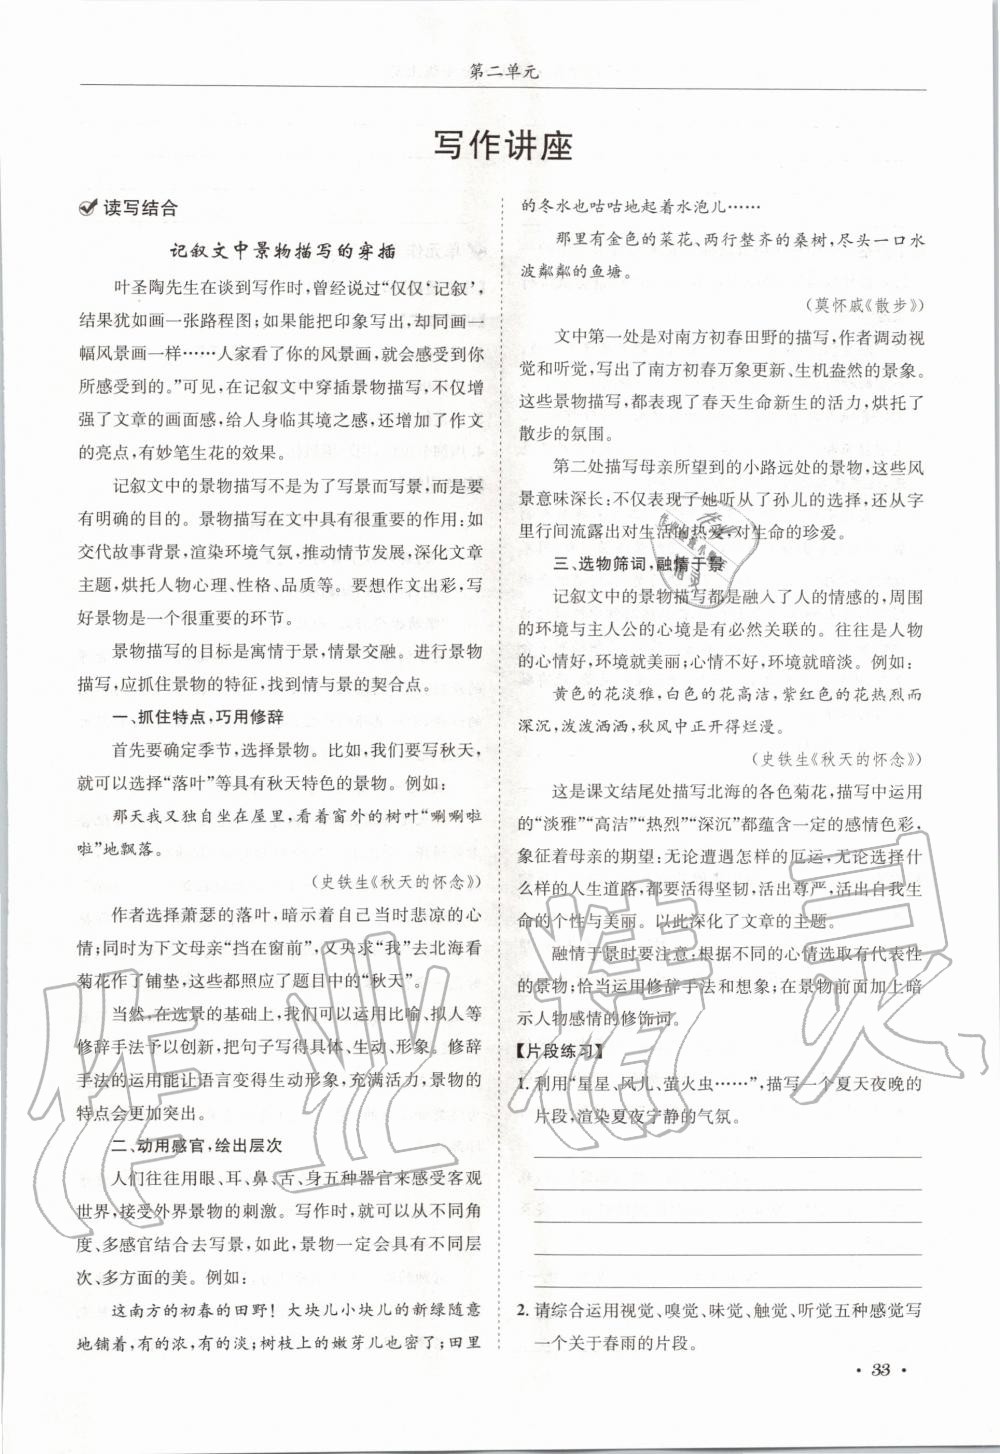 第二单元
写作讲座
读写结合
记叙文中景物描写的穿插
叶圣陶先生在谈到写作时,曾经说过“仅仅‘记叙’,
结果犹如画一张路程图;如果能把印象写出,却同画一
幅风景画一样……人家看了你的风景画,就会感受到你
所感受的。”可见,在记叙文中穿插景物描写,不仅增
强了文章的画面感,给人身临其境之感,还增加了作文
的亮点,有妙笔生花的效果。
记叙文中的景物描写不是为了写景而写景,而是要
有明确的目的。景物描写在文中具有很重要的作用:如
交代故事背景,渲染环境气氛,推动情节发展,深化文章
主题,烘托人物心理、性格、品质等。要想作文出彩,写
好景物是一个很重要的环节。
景物描写的目标是寓情于景,情景交融。进行景物
描写,应抓住景物的特征,找到情与景的契合点。
一、抓住特点,巧用修辞
首先要确定季节,选择景物。比如,我们要写秋天,
就可以选择“落叶”等具有秋天特色的景物。例如:
那天我又独自坐在屋里,看着窗外的树叶“唰唰啦
啦”地飘落。
(史铁生《秋天的怀念》)
作者选择萧瑟的落叶,暗示着自己当时悲凉的心
情;同时为下文母亲“挡在窗前”,又央求“我”去北海看
菊花作了铺垫,这些都暗合了题目中的“秋天”。
当然,在选景的基础上,我们可以运用比喻、拟人等
修辞手法予以创新,把句子写得具体、生动、形象。修辞
手法的运用能让语言变得生动形象,充满活力,景物的
特点会更加突出。
二、动用感官,绘出层次
人们往往用眼、耳、鼻、舌、身五种器官来感受客观
世界,接受外界景物的刺激。写作时,就可以从不同角
度、多感官结合去写景,如此,景物一定会具有不同层
次、多方面的美。例如:
这南方的初春的田野!大块儿小块儿的新绿随意
地铺着,有的浓,有的淡;树枝上的嫩芽儿也密了;田里
的冬水也咕咕地起着水泡儿……
那里有金色的菜花、两行整齐的桑树,尽头一口水
波粼粼的鱼塘。
(莫怀戚《散步》)
文中第一处是对南方初春田野的描写,作者调动视
觉和听觉,写出了南方初春万象更新、生机盎然的景象。
这些景物描写,都表现了春天生命新生的活力,烘托了
散步的氛围。
第二处描写母亲所望到的小路远处的景物,这些风
景意味深长:不仅表现了她听从了孙儿的选择,还从字
里行间流露出对生活的热爱,对生命的珍爱。
三、选物筛词,融情于景
记叙文中的景物描写都是融入了人的情感的,周围
的环境与主人公的心境是有必然关联的。往往是人物
的心情好,环境就美丽;心情不好,环境就暗淡。例如:
黄色的花淡雅,白色的花高洁,紫红色的花热烈而
深沉,泼泼洒洒,秋风中正开得烂漫。
(史铁生《秋天的怀念》)
这是课文结尾处描写北海的各色菊花,描写中运用
的“淡雅”“高洁”“热烈”“深沉”都蕴含一定的感情色彩,
象征着母亲的期望:无论遭遇怎样的厄运,无论选择什
么样的人生道路,都要活得坚韧,活出尊严,活出自我生
命的个性与美丽。以此深化了文章的主题。
融情于景时要注意:根据不同的心情选取有代表性
的景物;恰当运用修辞手法和想象;在景物前面加上暗
示人物感情的修饰词。
【片段练习】
1. 利用“星星、风儿、萤火虫……”,描写一个夏天夜晚的
片段,渲染夏夜宁静的气氛。
2. 请综合运用视觉、嗅觉、味觉、触觉、听觉五种感觉写
一个关于春雨的片段。
· 33 ·
作业精灵